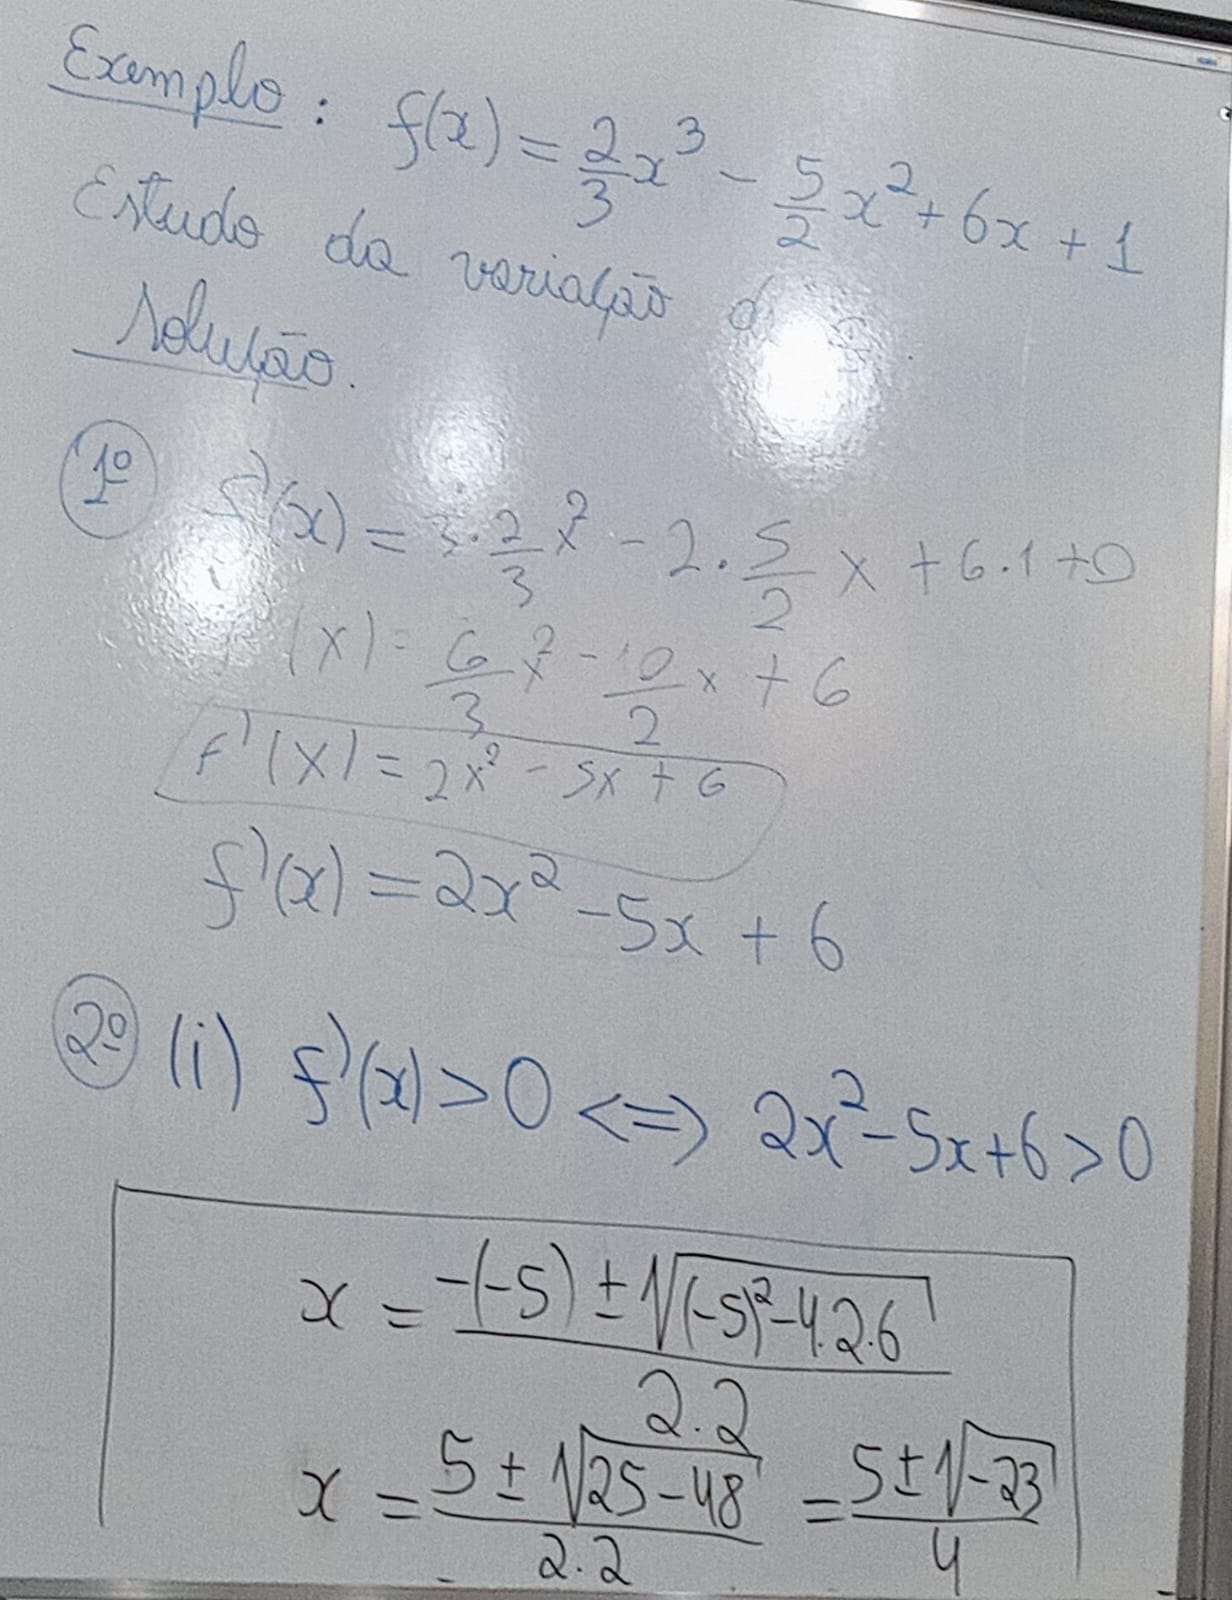 Exemplo: f(x) = 2/3 x³ - 5/2 x² + 6x + 1
Estudo da variação
Solução.
1º f'(x) = 3·2/3 x² - 2·5/2 x + 6·1 + 0
(x) = 6/3 x² - 10/2 x + 6
f'(x) = 2x² - 5x + 6
f'(x) = 2x² - 5x + 6
2º (i) f'(x) > 0 <=> 2x² - 5x + 6 > 0
x = (-(-5) ± √((-5)² - 4.2.6)) / 2.2
x = (5 ± √(25 - 48)) / 2.2 = (5 ± √(-23)) / 4